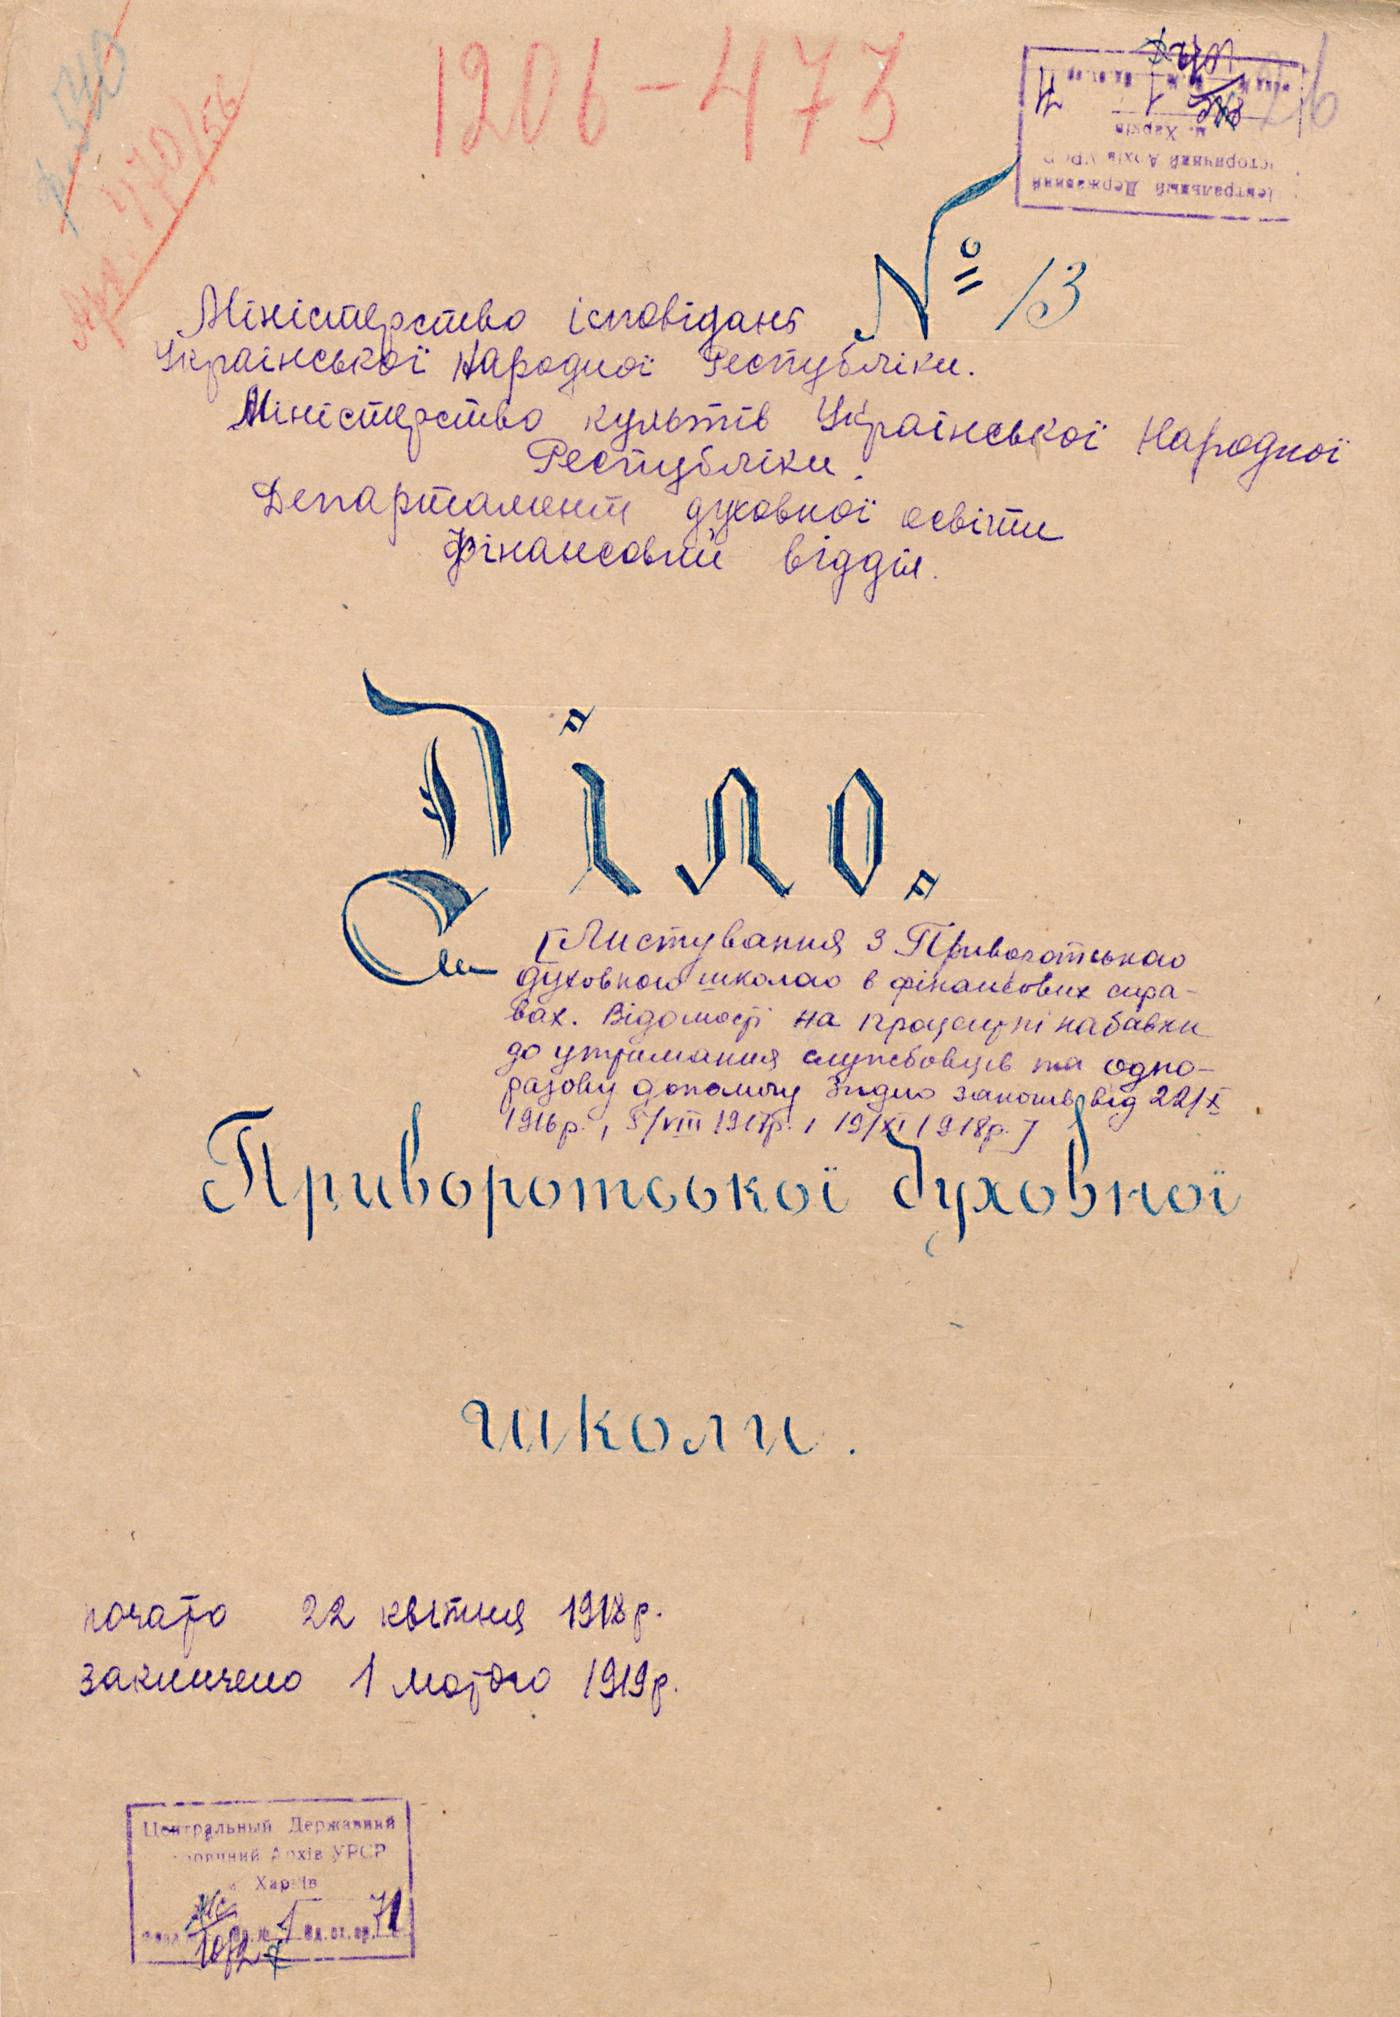 1206-473
540
470/56
26
Центральный Державний
Архів УРСР
м. Харків
№ 13
Міністерство ісповідань
Української Народної Республіки.
Міністерство культів Української Народної
Республіки.
Департамент духовної освіти
Фінансовий відділ.
Діло.
[Листування з Приворотською
духовною школою в фінансових спра-
вах. Відомості на процентні набавки
до утримання службовців та одно-
разову допомогу згідно законів від 22/X
1916р., 5/VIII 1917р. і 19/XI 1918р.]
Приворотської духовної
школи.
почато 22 квітня 1918р.
закінчено 1 лютого 1919р.
Центральный Державний
Архів УРСР
Харків
Од. ох. зр. 71